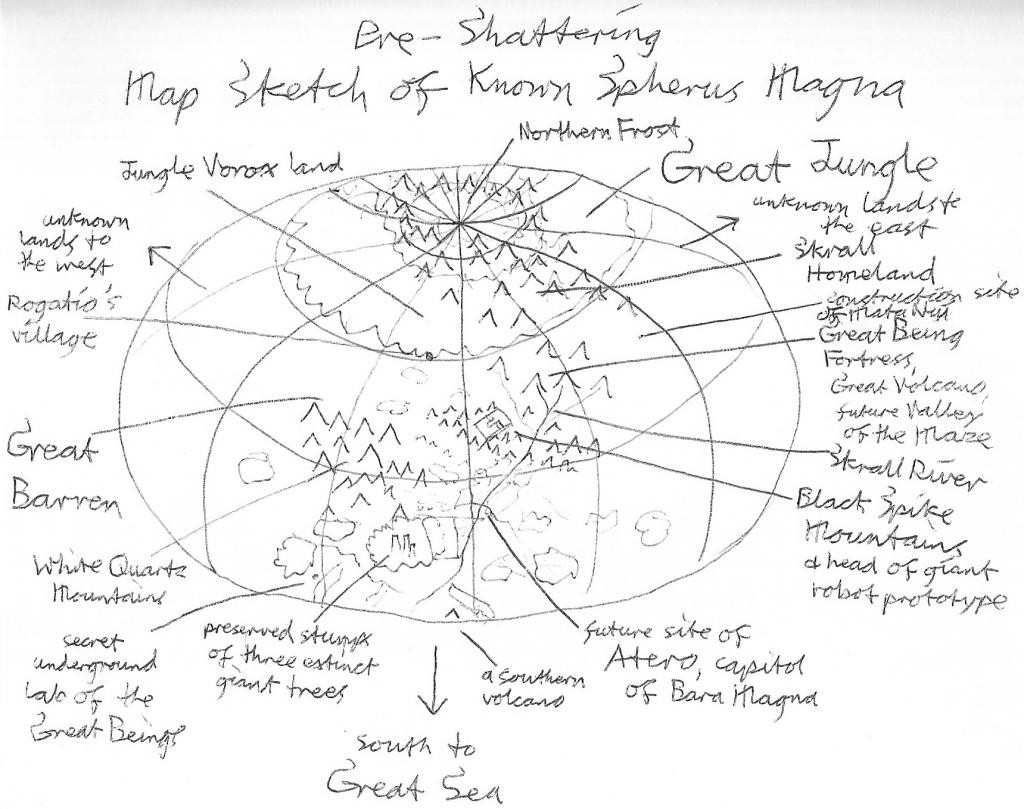 Pre-Shattering
Map Sketch of Known Spherus Magna
Northern Frost
Jungle Vorox land
Great Jungle
unknown
lands to
the west
unknown lands to
the east
Skrall
Homeland
Rogatio's
village
construction site
of Mata Nui
Great Being
Fortress,
Great Volcano,
future Valley
of the Maze
Great
Barren
Skrall River
Black Spike
Mountains,
& head of giant
robot prototype
White Quartz
Mountains
secret
underground
Lab of the
Great Beings
preserved stumps
of three extinct
giant trees
a southern
volcano
future site of
Atero, capitol
of Bara Magna
south to
Great Sea